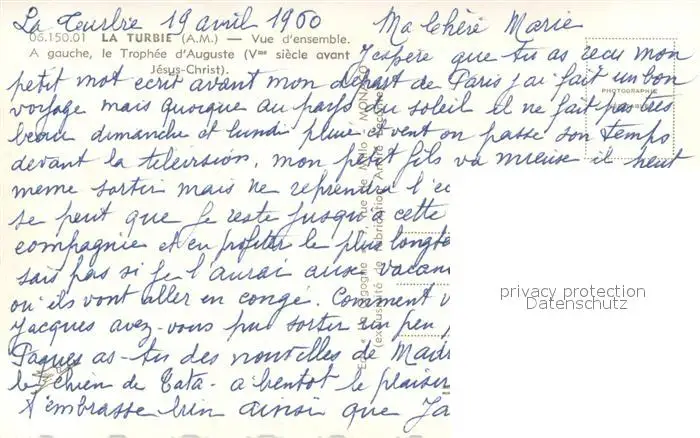 La Turbie 19 avril 1960
Ma Chère Marie
06.150.01 LA TURBIE (A.M.) — Vue d'ensemble.
A gauche, le Trophée d'Auguste (Vme siècle avant
Jésus-Christ).
J'espère que tu as recu mon
petit mot ecrit avant mon départ de Paris j'ai fait un bon
voyage mais quoique au pays du soleil il ne fait pas tres
beau dimanche et lundi pluie et vent on passe son temps
devant la television, mon petit fils va mieuse il peut
meme sortir mais ne reprendra l'ec
se peut que je reste jusqu'a cette
compagnie et en profiter le plus longte
sais pas si je l'aurai aux vacan
ou ils vont aller en congé. Comment v
Jacques avez-vous pus sortir un peu
Paques as-tu des nouvelles de Mad
le chien de Tata - a bientot le plaiser
t'embrasse bien ainsi que Ja
PHOTOGRAPHIE
MONACO
privacy protection
Datenschutz